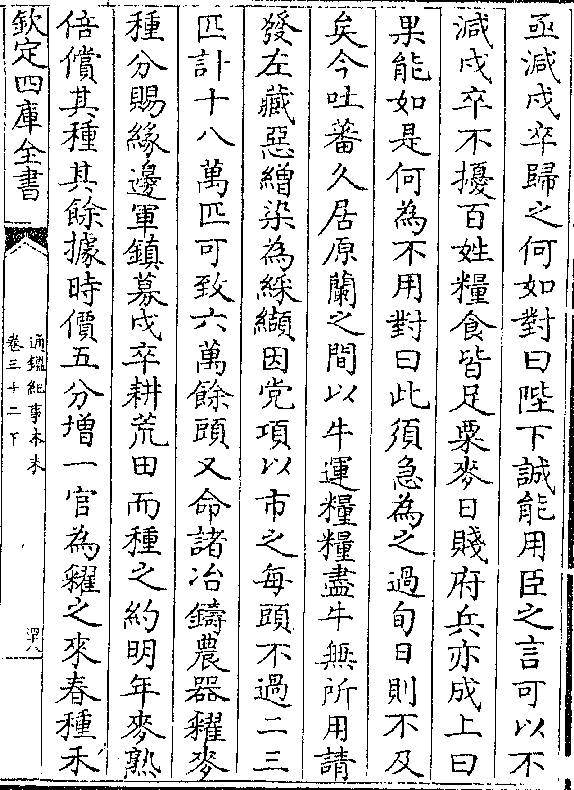 亟減戍卒歸之何如對曰陛下誠能用臣之言可以不
減戍卒不擾百姓糧食皆足粟麥日賤府兵亦成上曰
果能如是何為不用對曰此須急為之過旬日則不及
矣今吐蕃久居原蘭之間以牛運糧糧盡牛無所用請
發左藏惡繒染為綵纈因党項以市之每頭不過二三
匹計十八萬匹可致六萬餘頭又命諸冶鑄農器糴麥
種分賜緣邊軍鎮募戍卒耕荒田而種之約明年麥熟
倍償其種其餘據時價五分增一官為糴之來春種禾
欽定四庫全書
通鑑紀事本末
卷三十二下